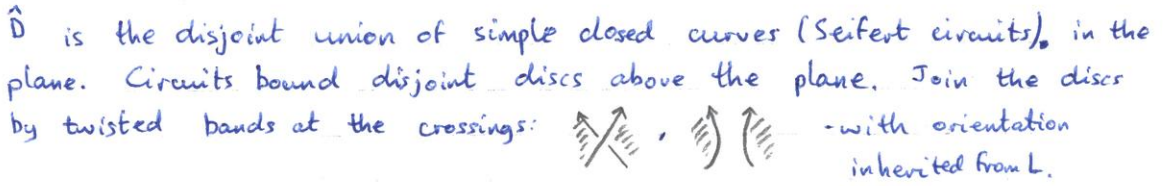 D̂ is the disjoint union of simple closed curves (Seifert circuits). in the
plane. Circuits bound disjoint discs above the plane. Join the discs
by twisted bands at the crossings: , -with orientation
inherited from L.